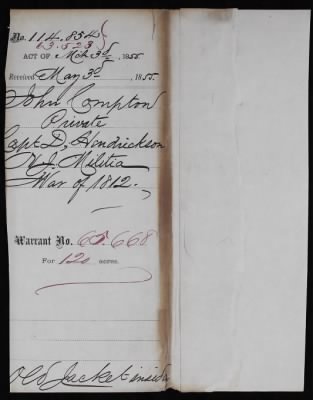 No. 114.854
63.523
ACT OF Mch 3d, 1855.
Received May 3d, 1855.
John Compton
Private
Capt D. Hendrickson
N.J. Militia
War of 1812.
Warrant No. 65.668
For 120 acres.
Old Jacket inside